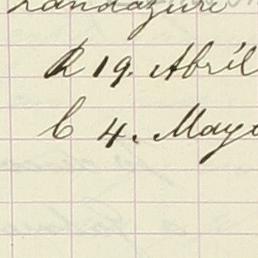 R 19. Abril
C 4. Mayo